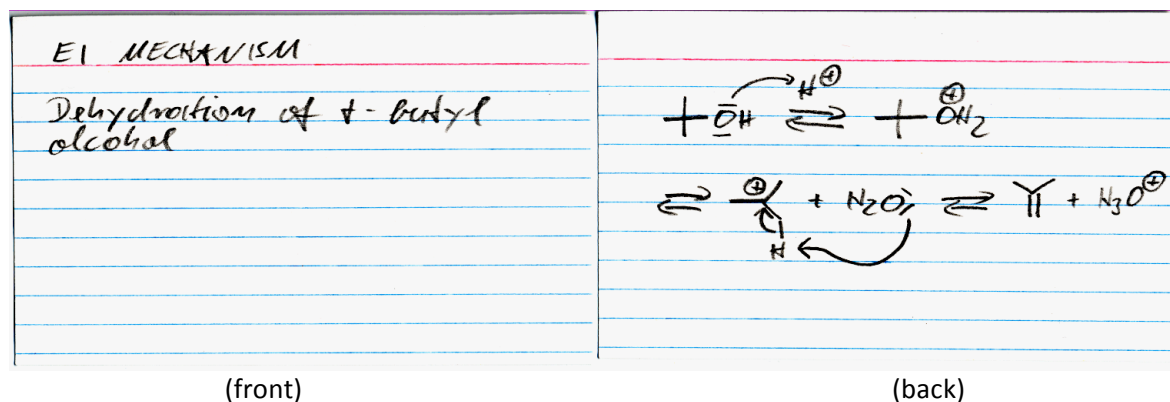 E1 MECHANISM
Dehydration of t-butyl
alcohol
ŌH H⊕ ⇌ ⊕OH2
⇌ ⊕ + H2O ⇌ + H3O⊕
H
(front)
(back)